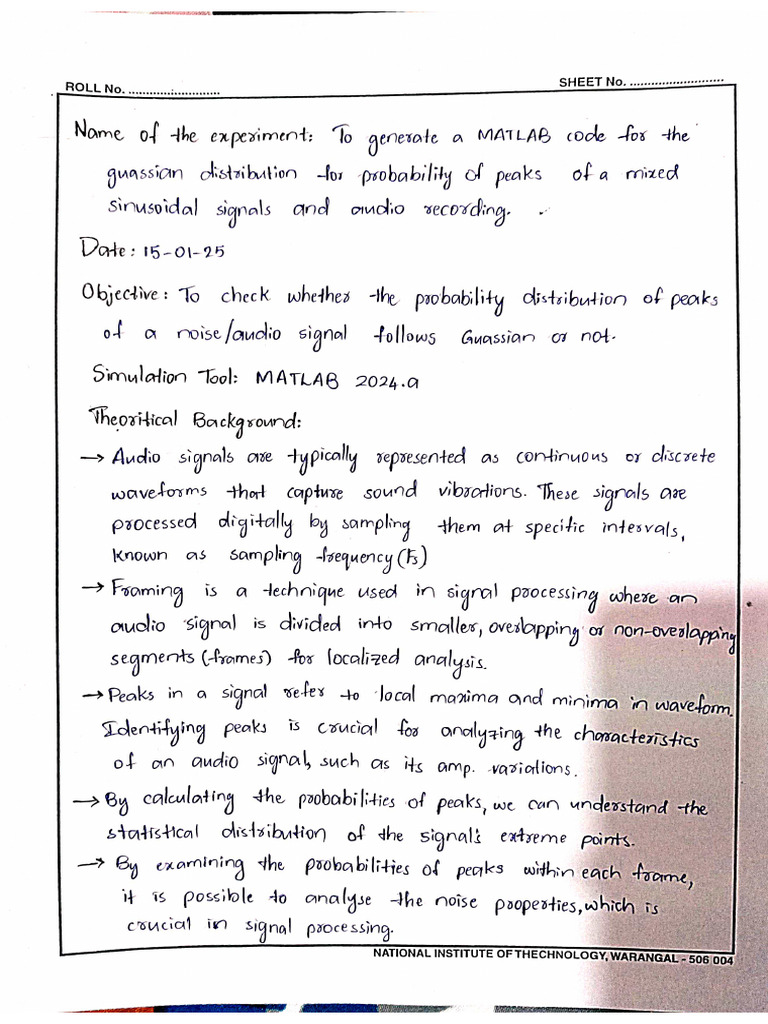 ROLL No. ..........................
SHEET No. ...........................
Name of the experiment: To generate a MATLAB code for the
guassian distribution for probability of peaks of a mixed
sinusoidal signals and audio recording.
Date: 15-01-25
Objective: To check whether the probability distribution of peaks
of a noise/audio signal follows Guassian or not.
Simulation Tool: MATLAB 2024.a
Theoritical Background:
→ Audio signals are typically represented as continuous or discrete
waveforms that capture sound vibrations. These signals are
processed digitally by sampling them at specific intervals,
known as sampling frequency (Fs)
→ Framing is a technique used in signal processing where an
audio signal is divided into smaller, overlapping or non-overlapping
segments (frames) for localized analysis.
→ Peaks in a signal refer to local maxima and minima in waveform.
Identifying peaks is crucial for analyzing the characteristics
of an audio signal, such as its amp. variations.
→ By calculating the probabilities of peaks, we can understand the
statistical distribution of the signal's extreme points.
→ By examining the probabilities of peaks within each frame,
it is possible to analyse the noise properties, which is
crucial in signal processing.
NATIONAL INSTITUTE OF THECHNOLOGY, WARANGAL - 506 004